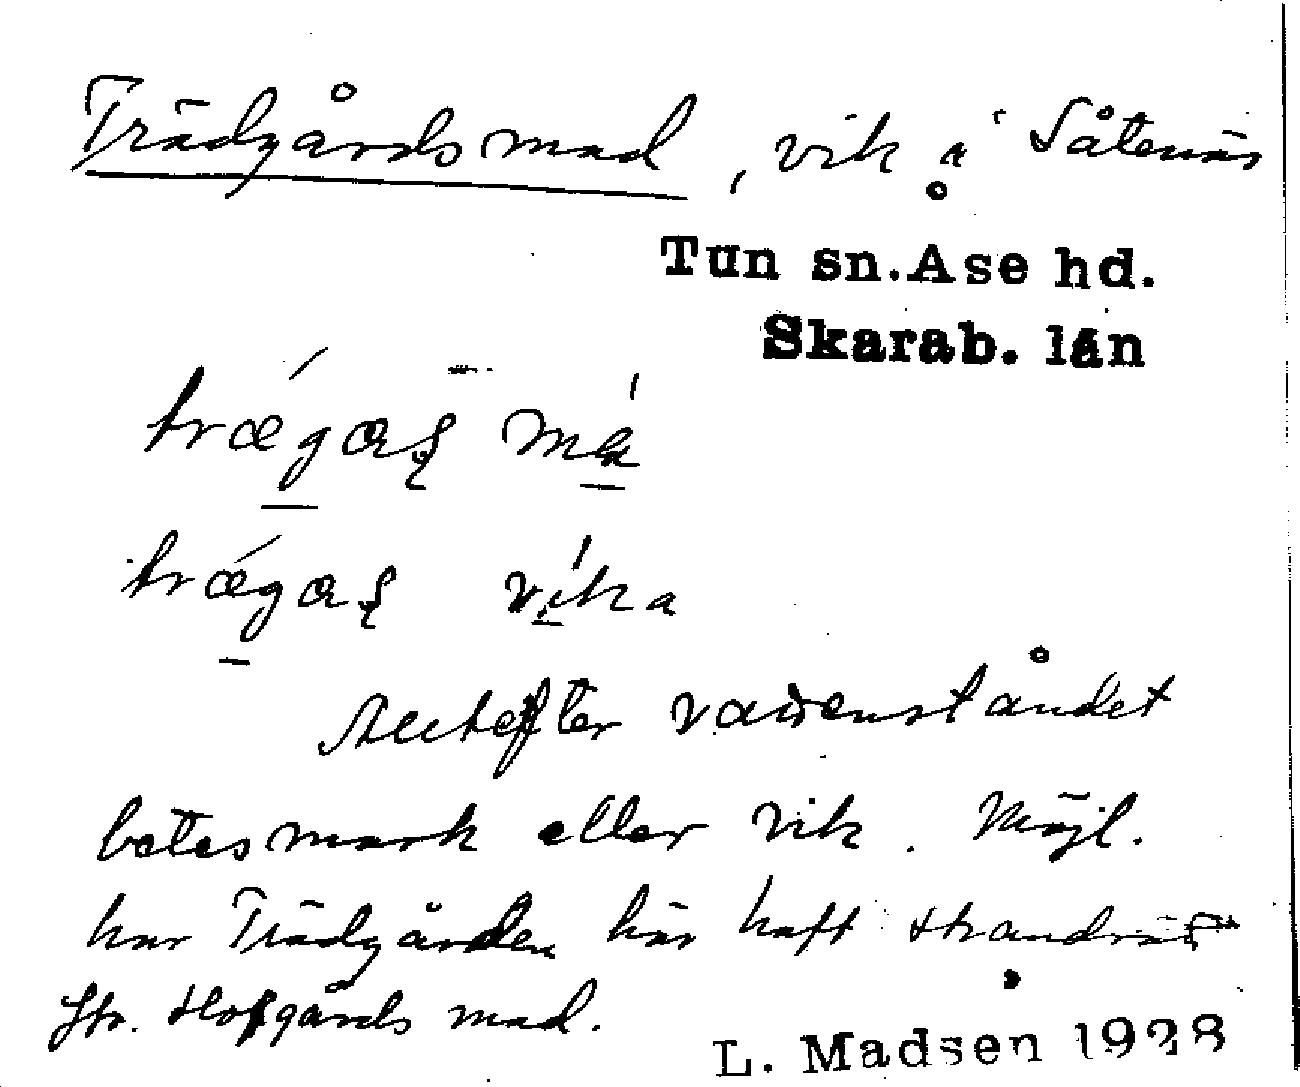 Trädgårdsmad, vik i Såtenäs
Tun sn. Åse hd.
Skarab. län
trægaş må
trægaş vika
Alltefter vattenståndet
betesmark eller vik. Möjl.
har Trädgården här haft strandrätt
Jfr. Hofgårds mad.
L. Madsen 1928